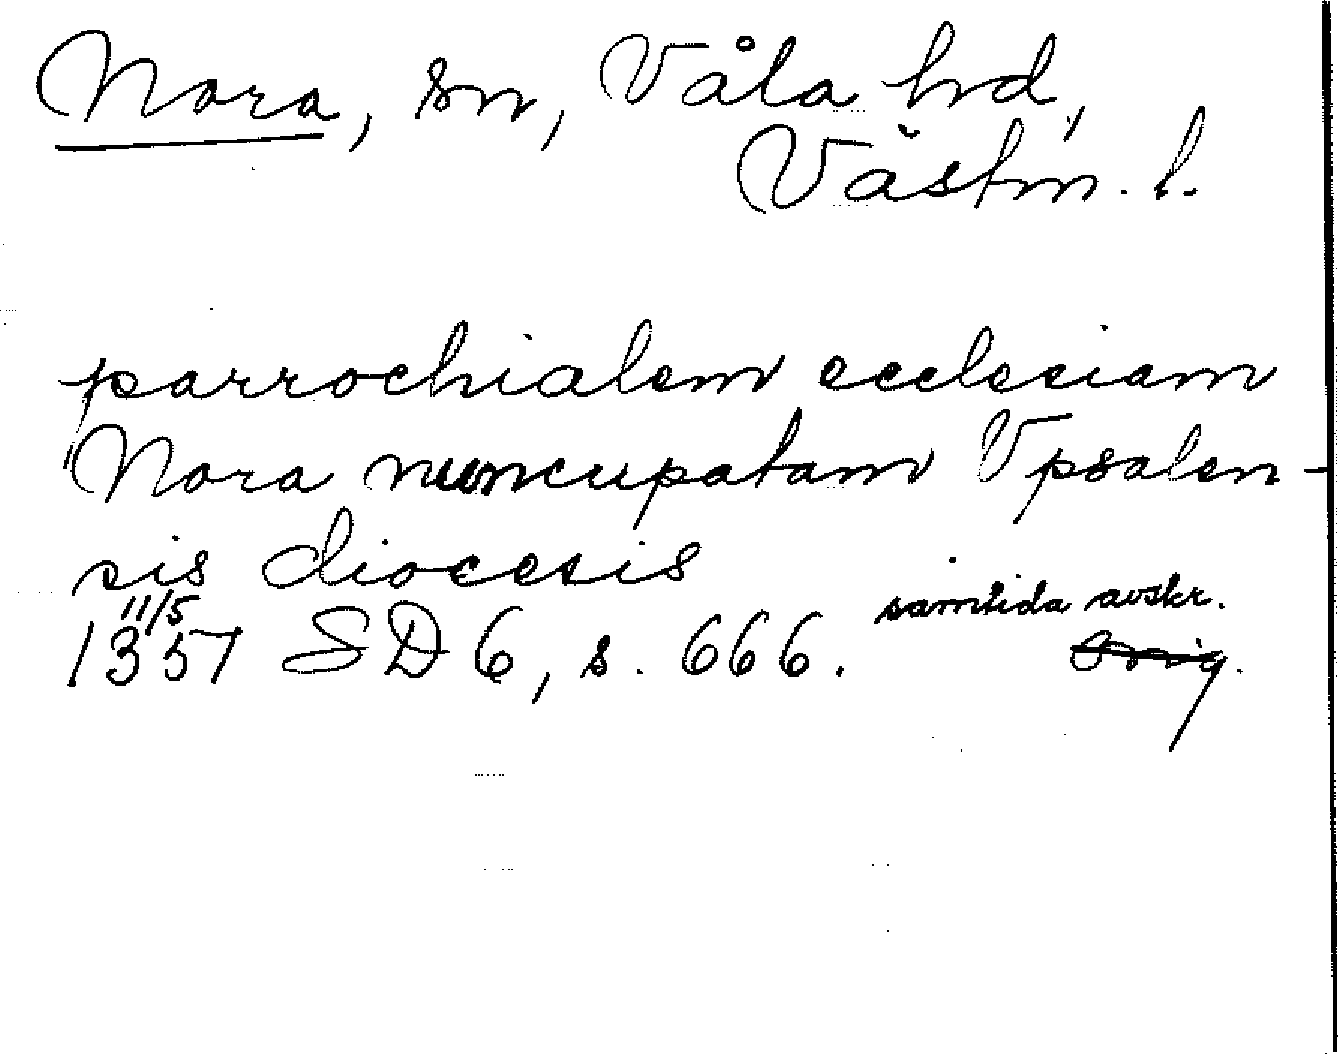 Nora, sn, Våla hd,
Västm. l.
parrochialem ecclesiam
Nora nuncupatam Vpsalen-
sis diocesis
11/5 samtida avskr.
1357 SD 6, s. 666. Orig.